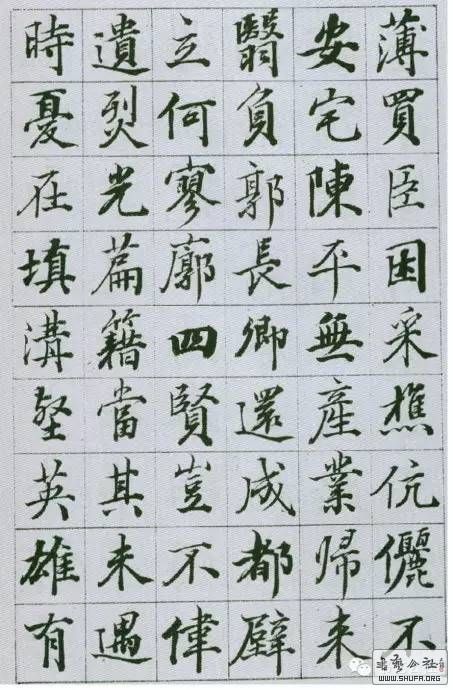 薄買臣困采樵伉儷不
安宅陳平無產業歸來
翳負郭長卿還成都壁
立何寥廓四賢豈不偉
遺烈光篇籍當其未遇
時憂在填溝壑英雄有
書藝公社
WWW.SHUFA.ORG